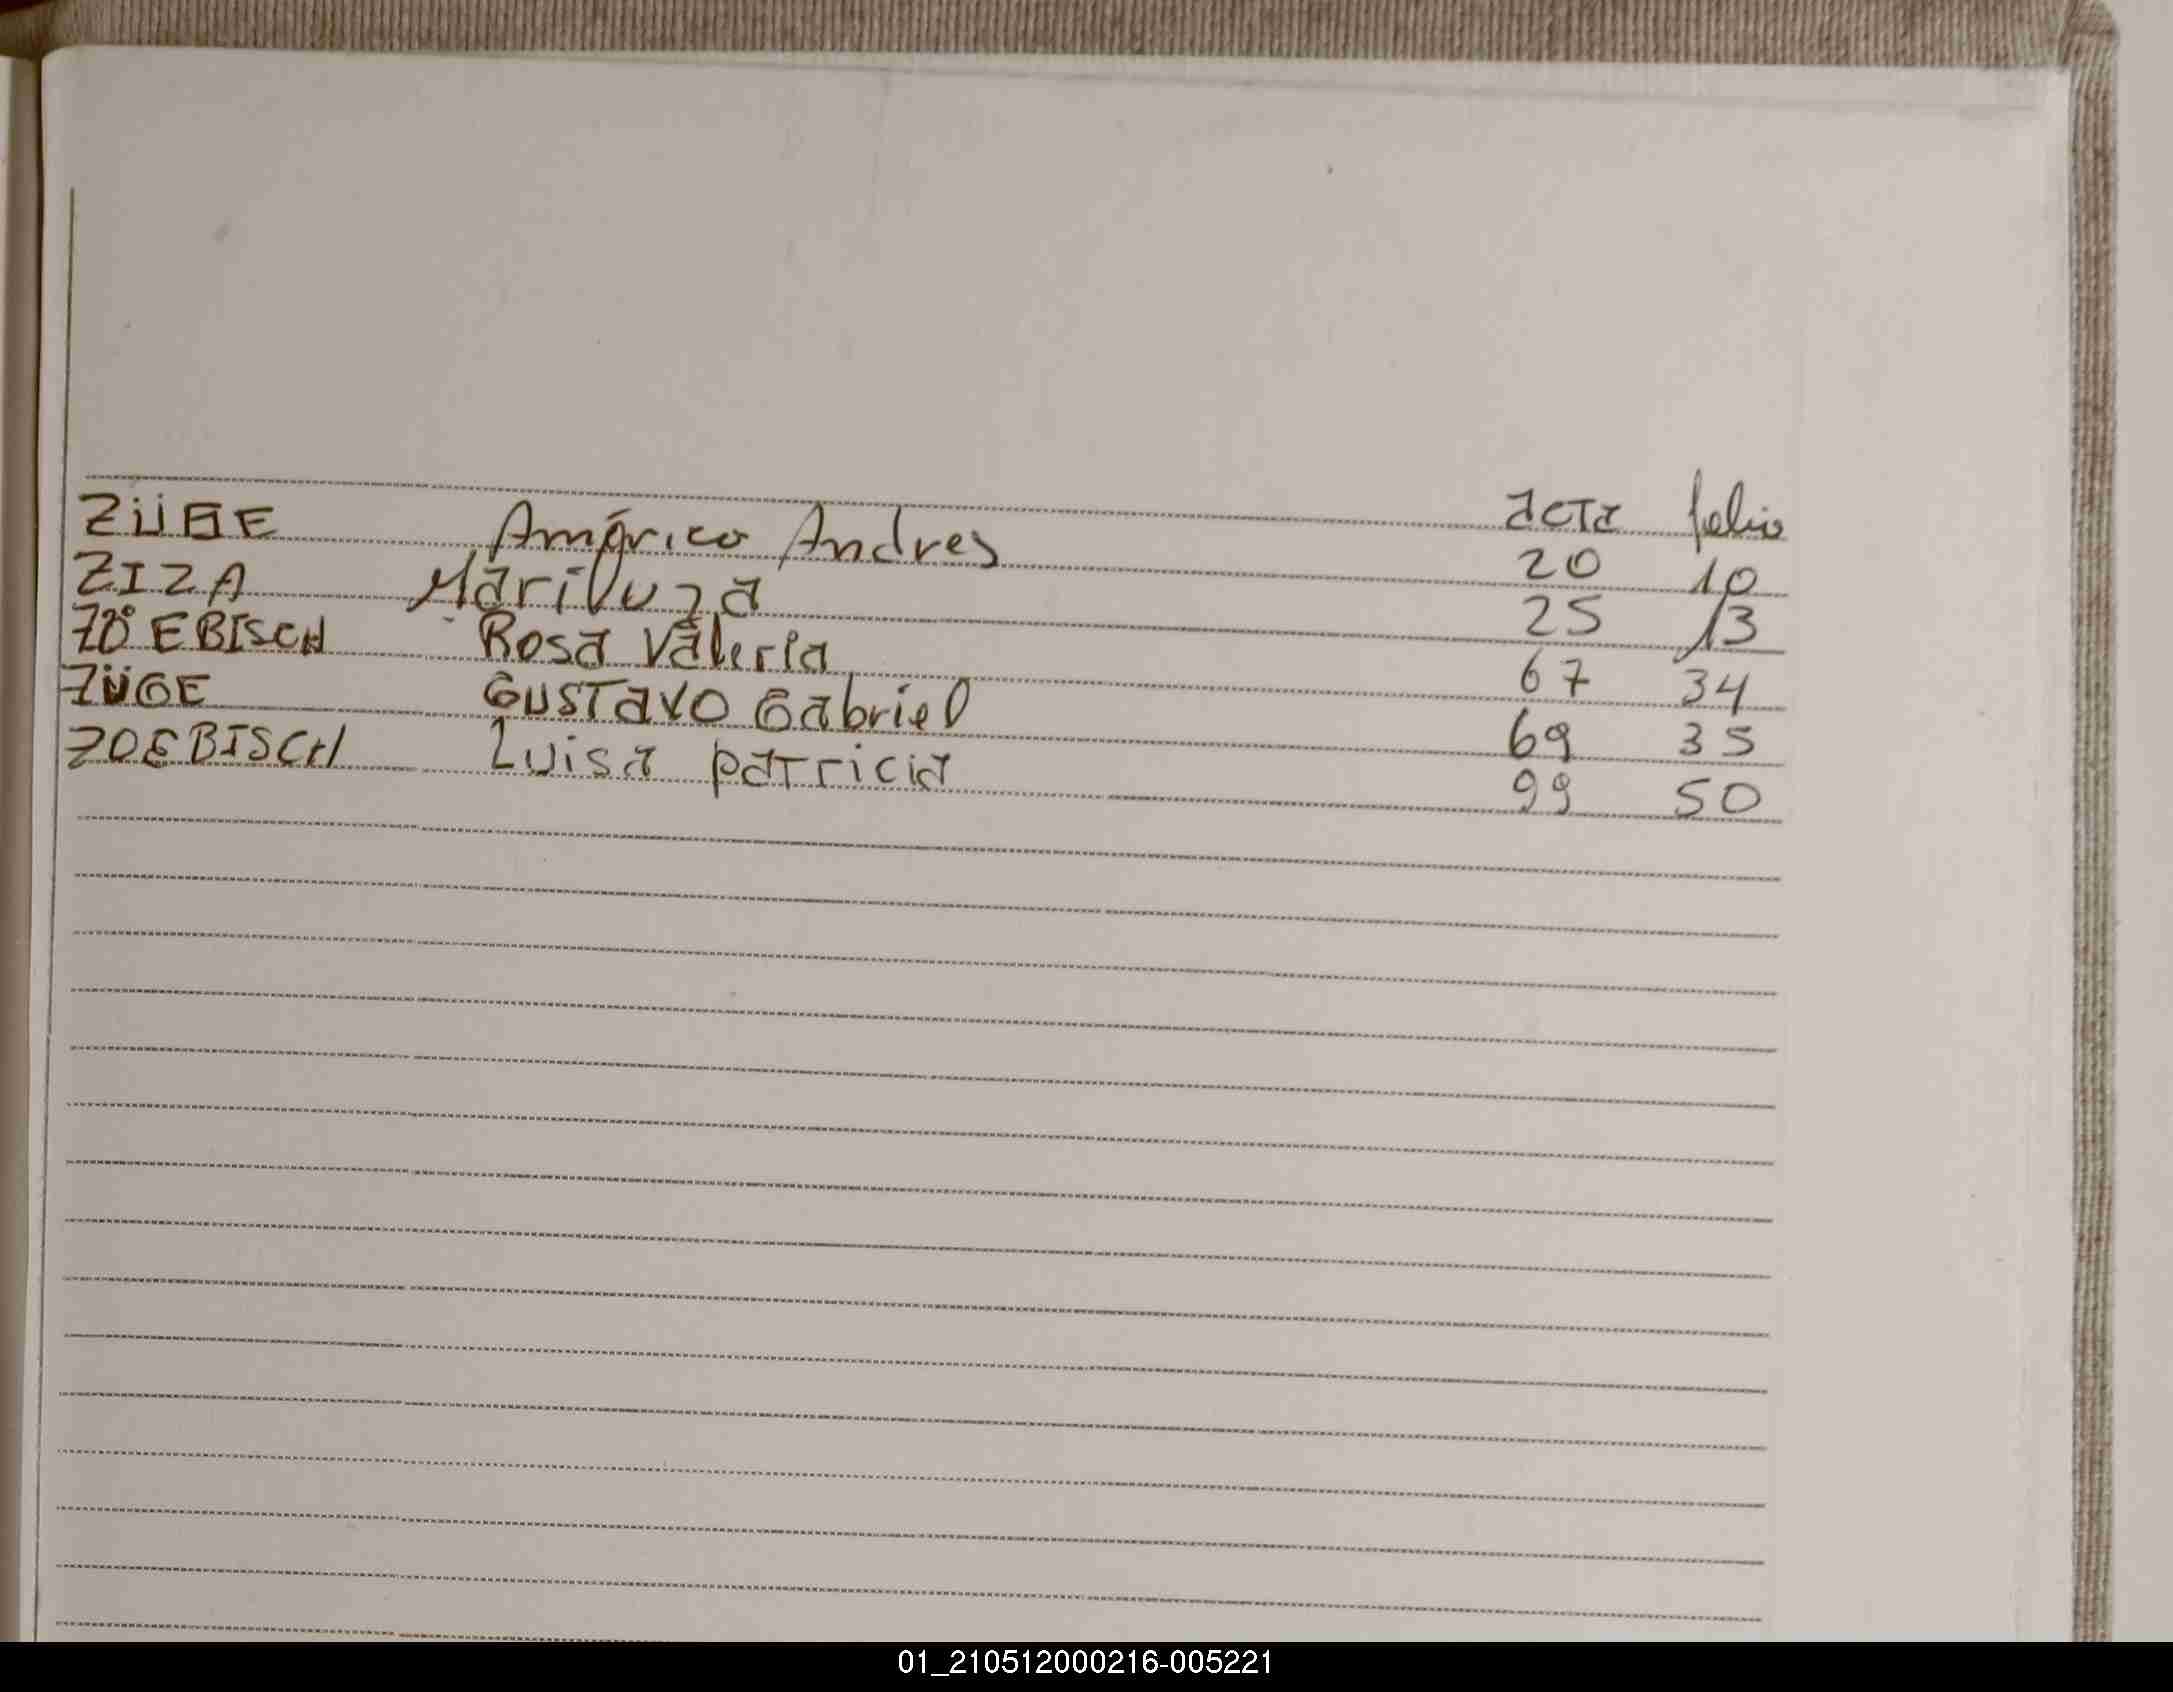 acta folio
ZÜGE Américo Andres 20 10
ZIZA Mariluza 25 13
ZOEBISCH Rosa Valeria 67 34
ZÜGE Gustavo Gabriel 69 35
ZOEBISCH Luisa Patricia 99 50
01_210512000216-005221